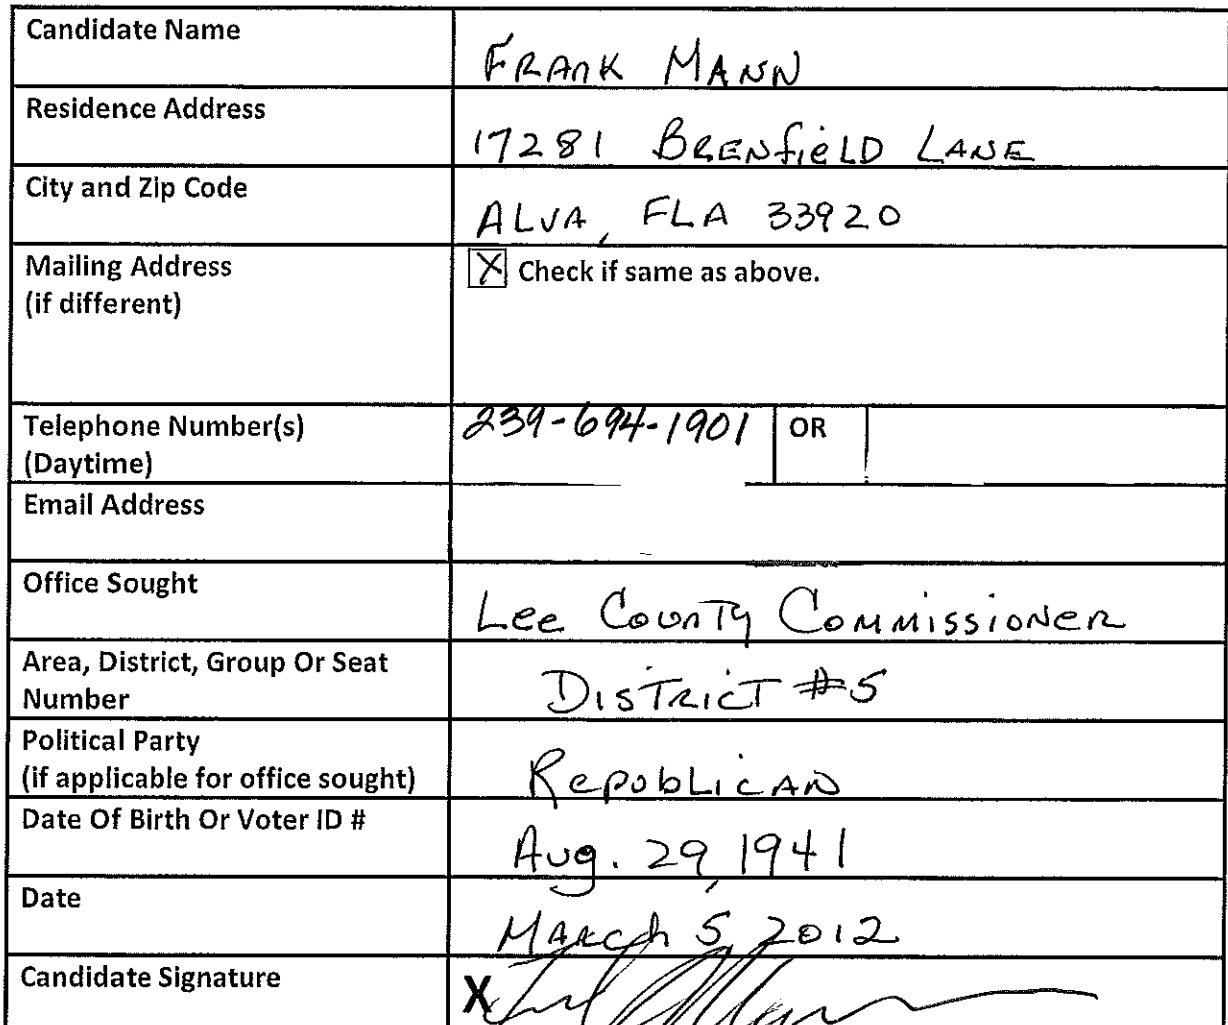 Candidate Name
FRANK MANN
Residence Address
17281 BRENfieLD LANE
City and Zip Code
ALVA, FLA 33920
Mailing Address
(if different)
X Check if same as above.
Telephone Number(s)
(Daytime)
239-694-1901 OR
Email Address
Office Sought
Lee County Commissioner
Area, District, Group Or Seat
Number
District #5
Political Party
(if applicable for office sought)
Republican
Date Of Birth Or Voter ID #
Aug. 29, 1941
Date
March 5, 2012
Candidate Signature
X